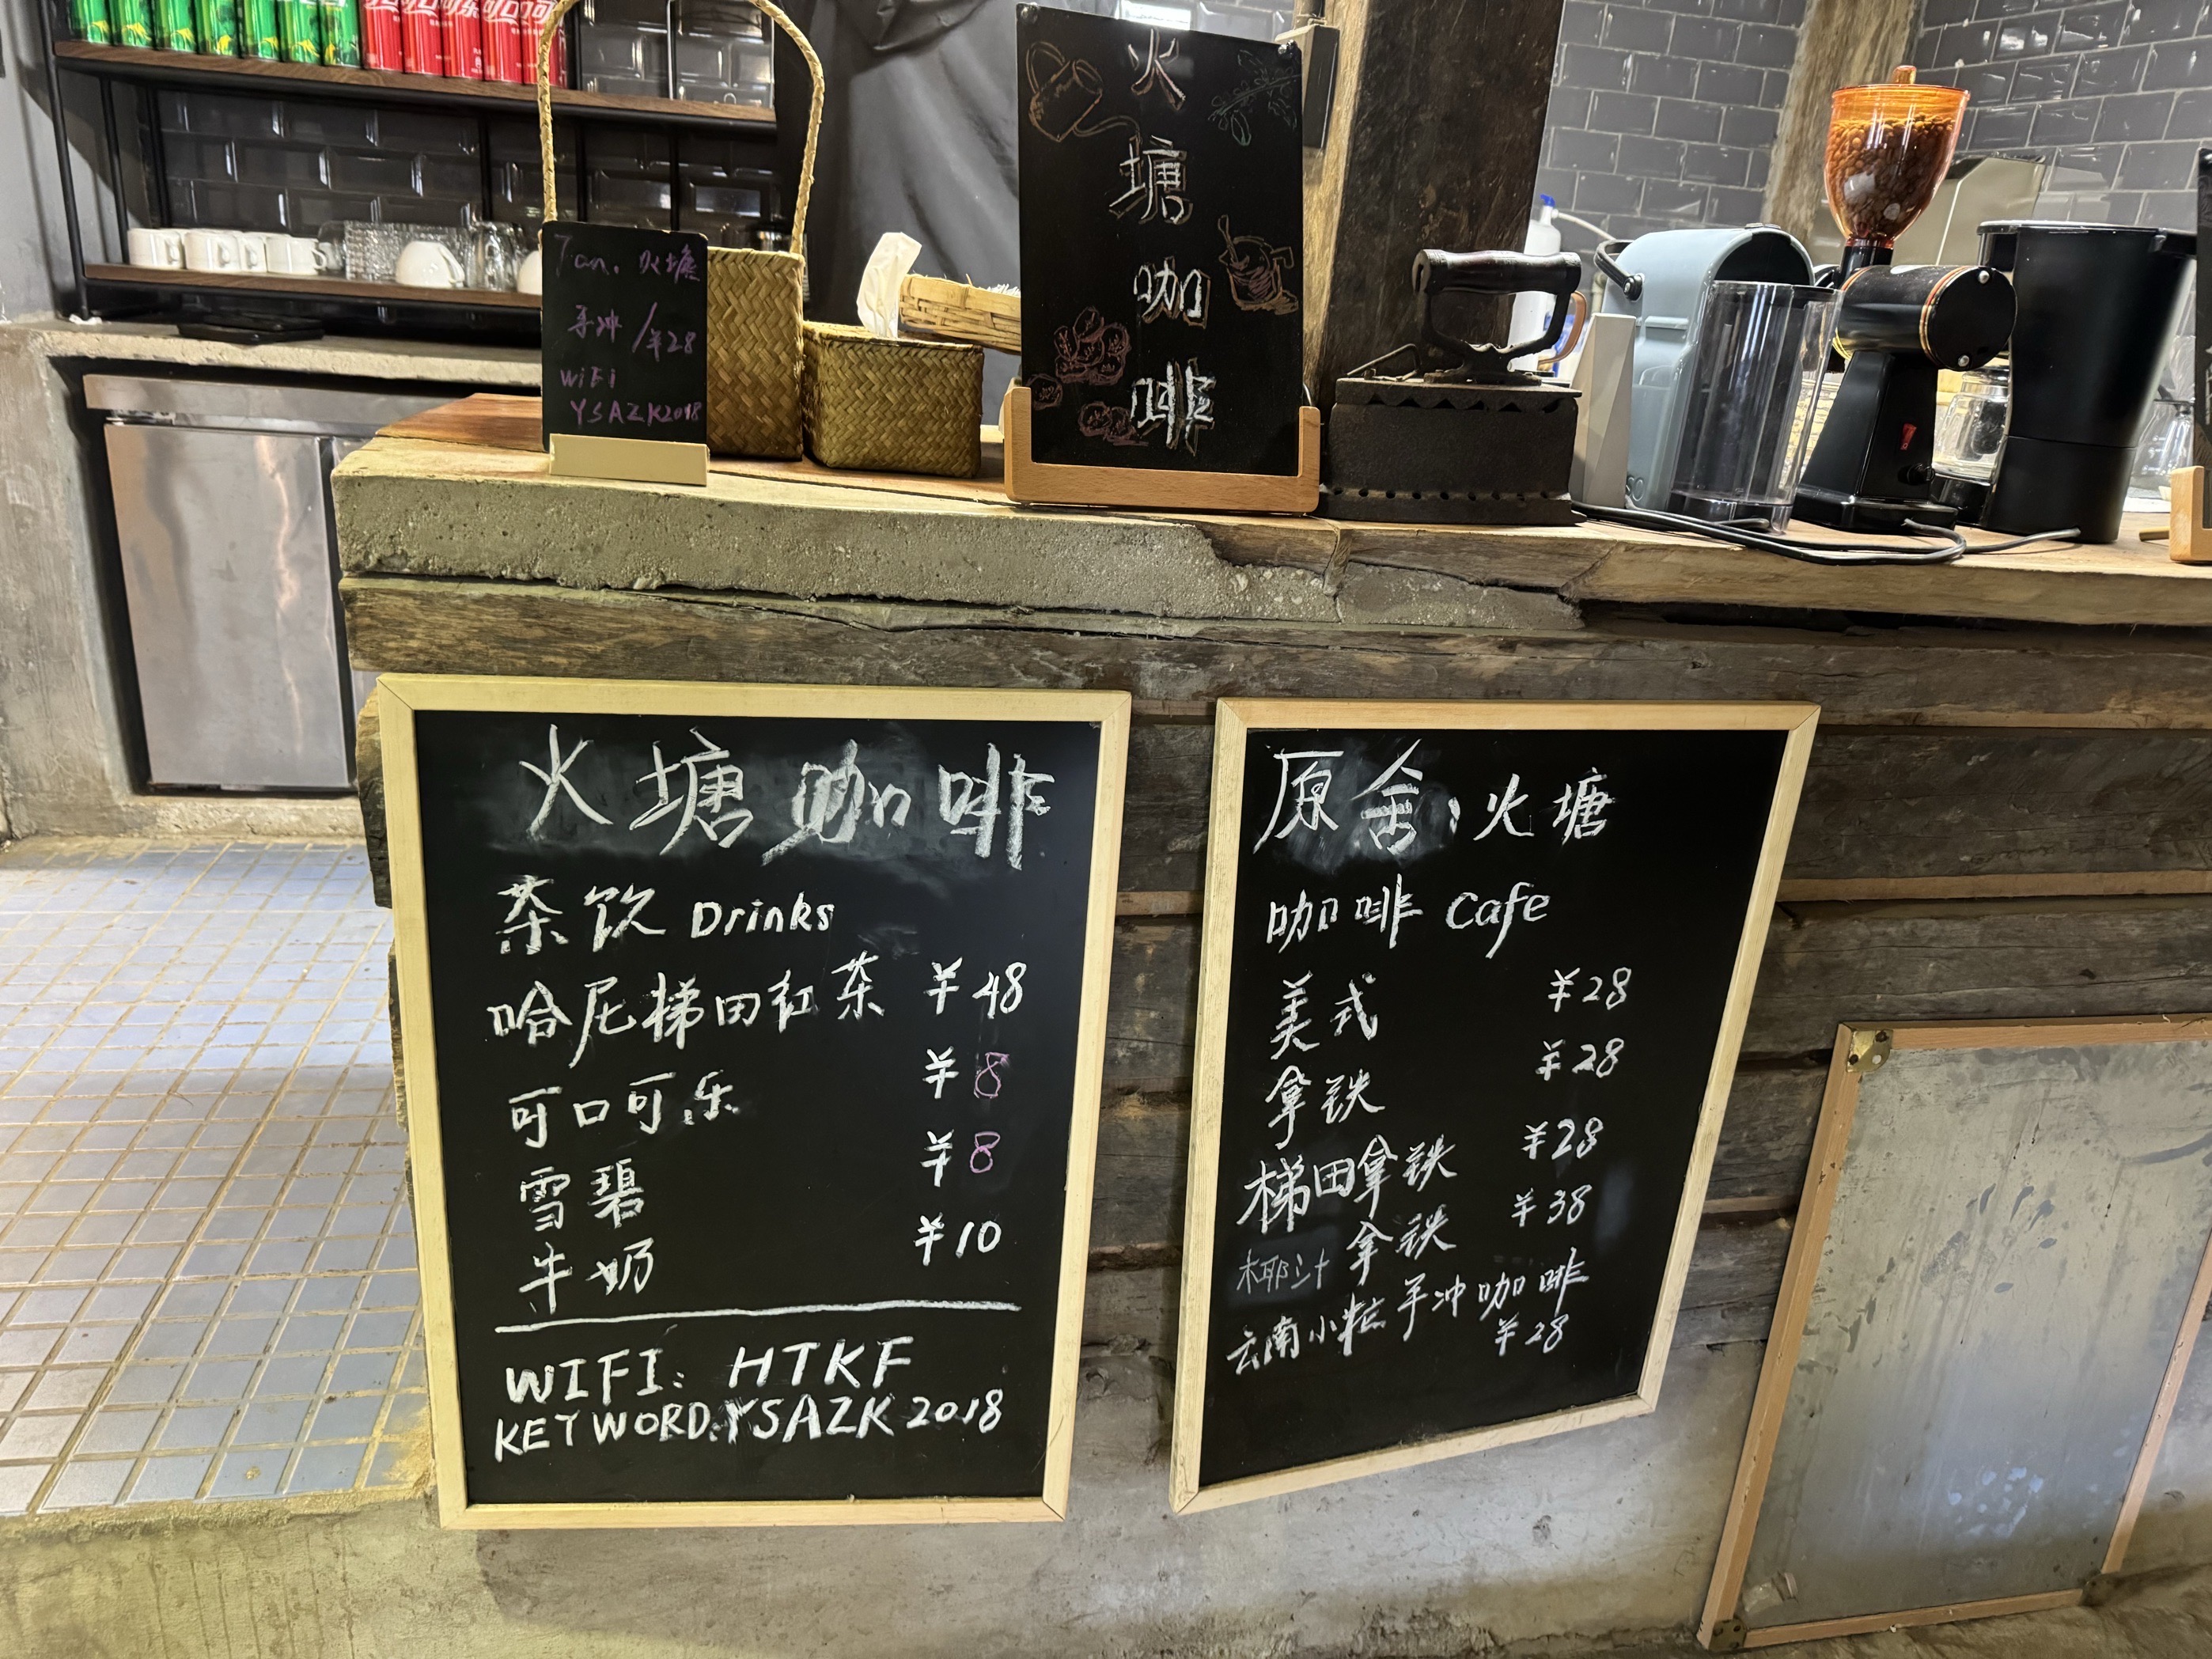 可口可乐
火
塘
咖
啡
Tan. 火塘
手冲/¥28
WiFi
YSAZK2018
火塘咖啡
茶饮 Drinks
哈尼梯田红茶 ¥48
可口可乐 ¥8
雪碧 ¥8
牛奶 ¥10
WIFI: HTKF
KEYWORD:YSAZK2018
原舍·火塘
咖啡 Cafe
美式 ¥28
拿铁 ¥28
梯田拿铁 ¥28
椰汁拿铁 ¥38
云南小粒手冲咖啡
¥28